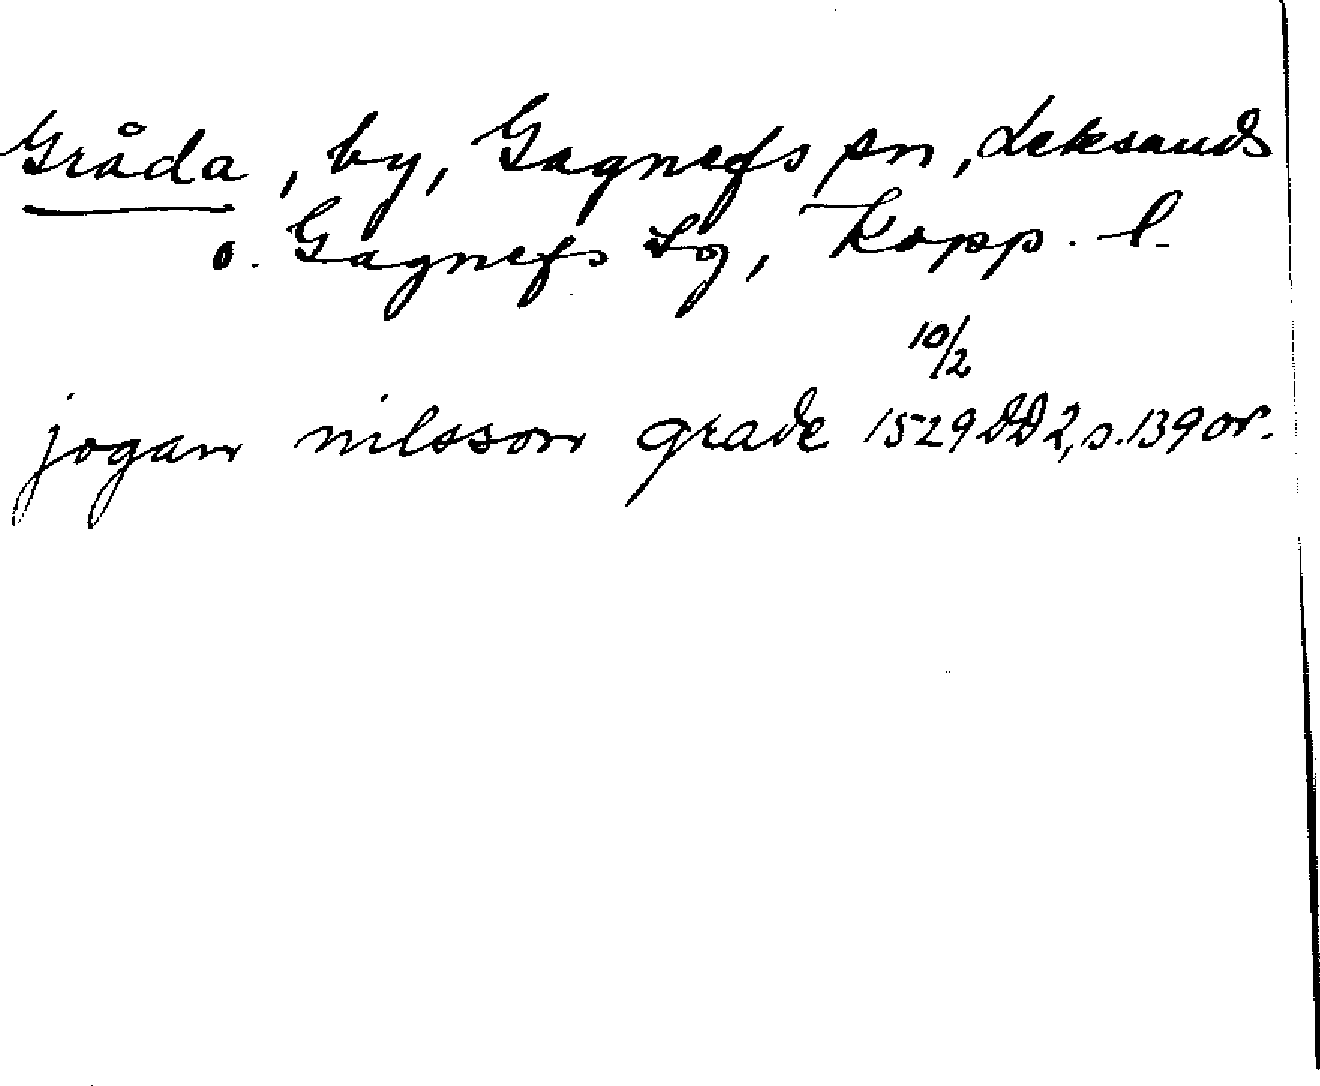 Gråda, by, Gagnefs sn, Leksands
o. Gagnefs tg, Kopp. l.
10/2
jogan nilsson grade 1529 DD2, s. 139 or.